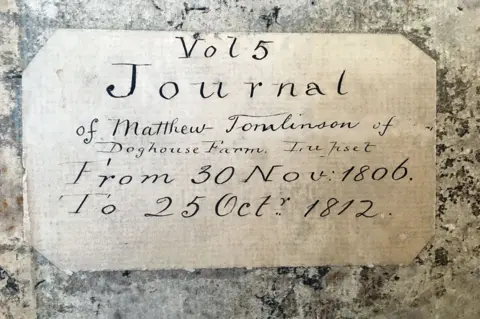 Vol 5
Journal
of Matthew Tomlinson of
Doghouse Farm. Lupset
From 30 Nov: 1806.
To 25 Octr. 1812.